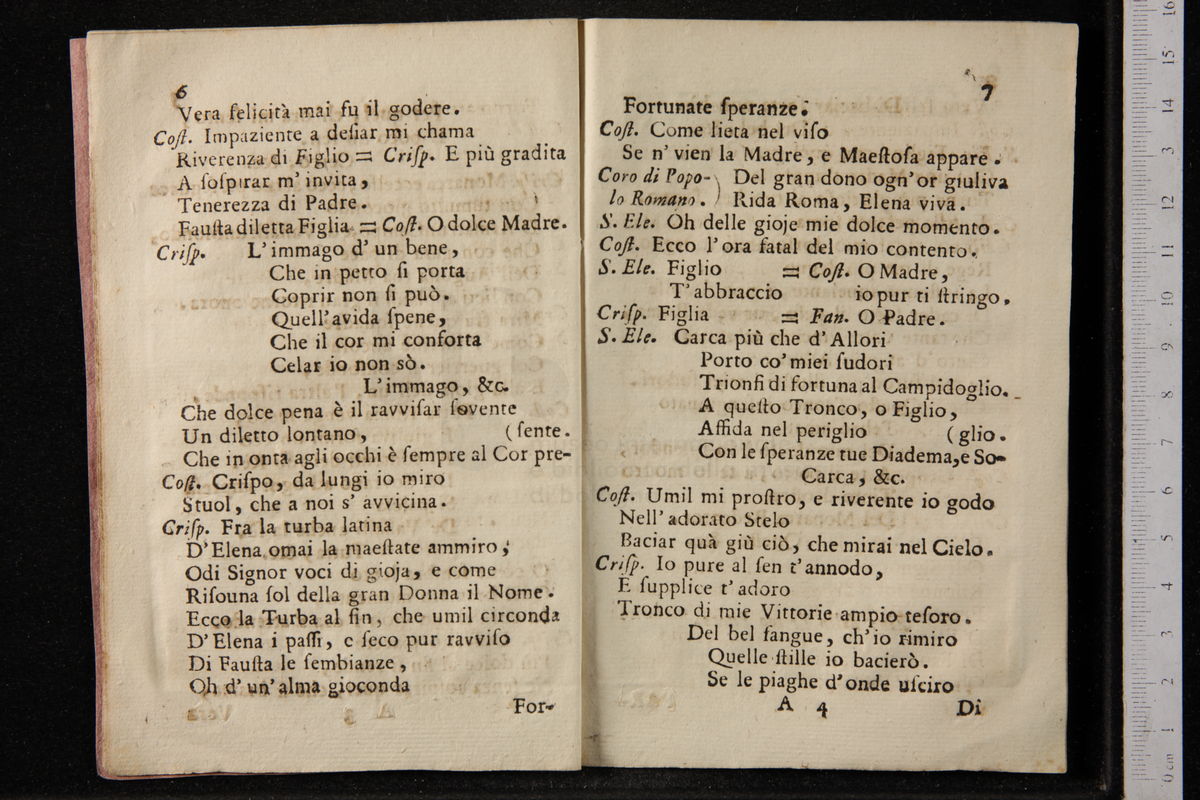 6
Vera felicità mai fu il godere.
Coſt. Impaziente a deſiar mi chama
Riverenza di Figlio = Criſp. E più gradita
A ſoſpirar m' invita,
Tenerezza di Padre.
Fauſta diletta Figlia = Coſt. O dolce Madre.
Criſp. L' immago d' un bene,
Che in petto ſi porta
Coprir non ſi può.
Quell' avida ſpene,
Che il cor mi conforta
Celar io non sò.
L' immago, &c.
Che dolce pena è il ravviſar ſovente
Un diletto lontano, (ſente.
Che in onta agli occhi è ſempre al Cor pre-
Coſt. Criſpo, da lungi io miro
Stuol, che a noi s' avvicina.
Criſp. Fra la turba latina
D' Elena omai la maeſtate ammiro;
Odi Signor voci di gioja, e come
Riſouna ſol della gran Donna il Nome.
Ecco la Turba al fin, che umil circonda
D' Elena i paſſi, e ſeco pur ravviſo
Di Fauſta le ſembianze,
Oh d' un' alma gioconda
For-
7
Fortunate ſperanze.
Coſt. Come lieta nel viſo
Se n' vien la Madre, e Maeſtoſa appare.
Coro di Popo-) Del gran dono ogn' or giuliva
lo Romano.) Rida Roma, Elena viva.
S. Ele. Oh delle gioje mie dolce momento.
Coſt. Ecco l' ora fatal del mio contento.
S. Ele. Figlio = Coſt. O Madre,
T' abbraccio io pur ti ſtringo.
Criſp. Figlia = Fan. O Padre.
S. Ele. Carca più che d' Allori
Porto co' miei ſudori
Trionfi di fortuna al Campidoglio.
A queſto Tronco, o Figlio,
Affida nel periglio (glio.
Con le ſperanze tue Diadema, e So-
Carca, &c.
Coſt. Umil mi proſtro, e riverente io godo
Nell' adorato Stelo
Baciar quà giù ciò, che mirai nel Cielo.
Criſp. Io pure al ſen t' annodo,
E ſupplice t' adoro
Tronco di mie Vittorie ampio teſoro.
Del bel ſangue, ch' io rimiro
Quelle ſtille io bacierò.
Se le piaghe d' onde uſciro
A 4 Di